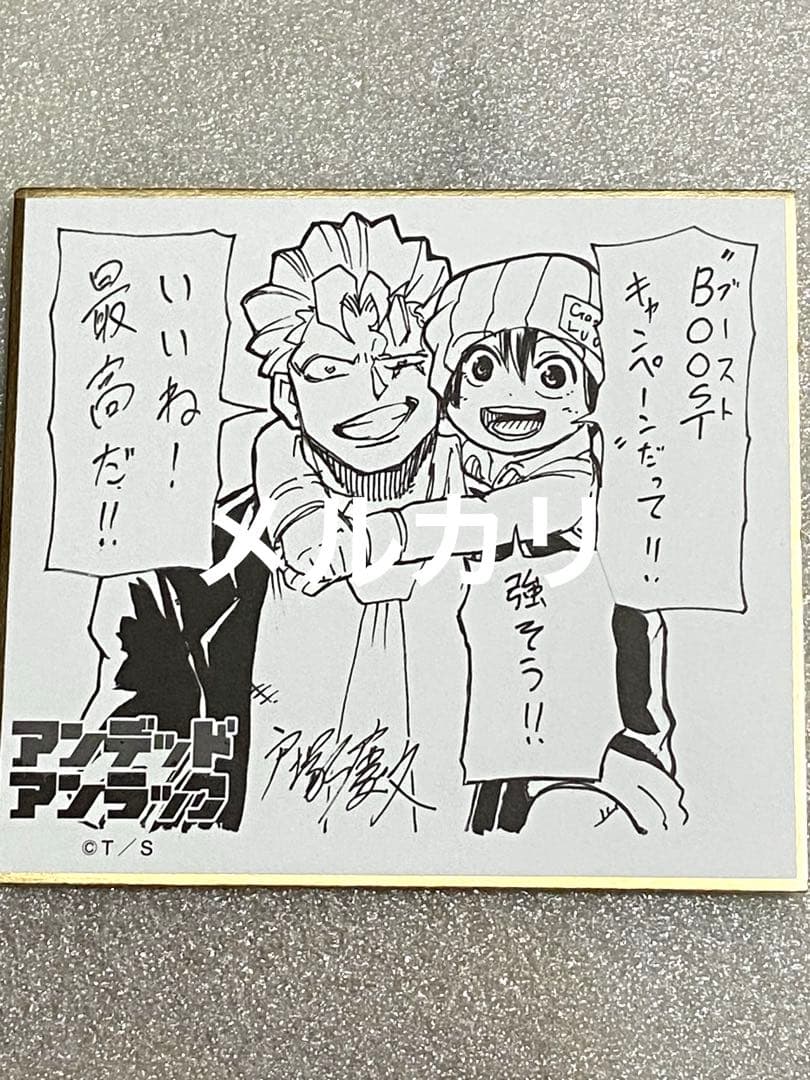 "BOOST
ブースト
キャンペーンだって"!!
強そう!!
いいね!
最高だ!!
Good
LUC
メルカリ
戸塚慶文
アンデッド
アンラック
©T/S